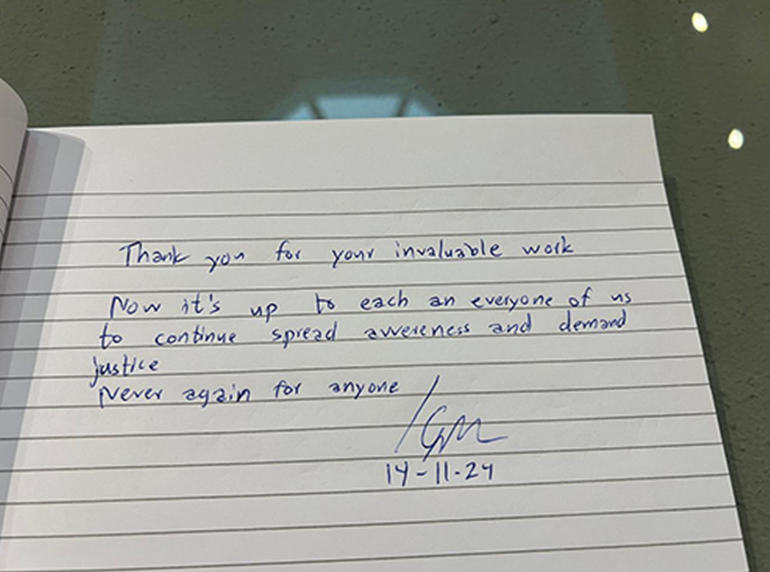 Thank you for your invaluable work
Now it's up to each an everyone of us
to continue spread awereness and demand
justice
Never again for anyone
14-11-24